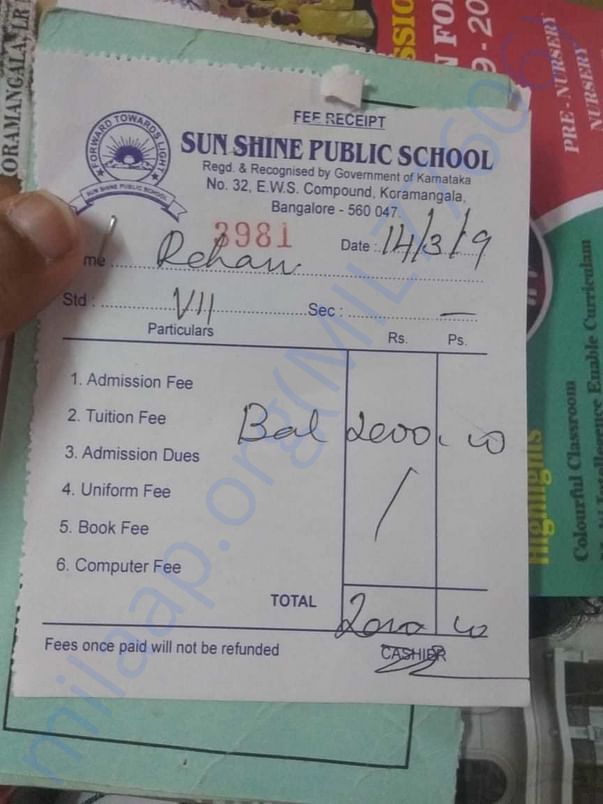 FEE RECEIPT
SUN SHINE PUBLIC SCHOOL
Regd. & Recognised by Government of Karnataka
No. 32, E.W.S. Compound, Koramangala,
Bangalore - 560 047.
FORWARD TOWARDS LIGHT
SUN SHINE PUBLIC SCHOOL
3981
Date : 14/3/19
me Rehan
Std : VII Sec : —
Particulars Rs. Ps.
1. Admission Fee
2. Tuition Fee Bal 2000.00
3. Admission Dues
4. Uniform Fee
5. Book Fee
6. Computer Fee
TOTAL 2000 00
Fees once paid will not be refunded CASHIER
ORAMANGALA
PRE - NURSERY
NURSERY
Highlights
Colourful Classroom
Intellegence Euable Curriculam
milaap.org(MIL